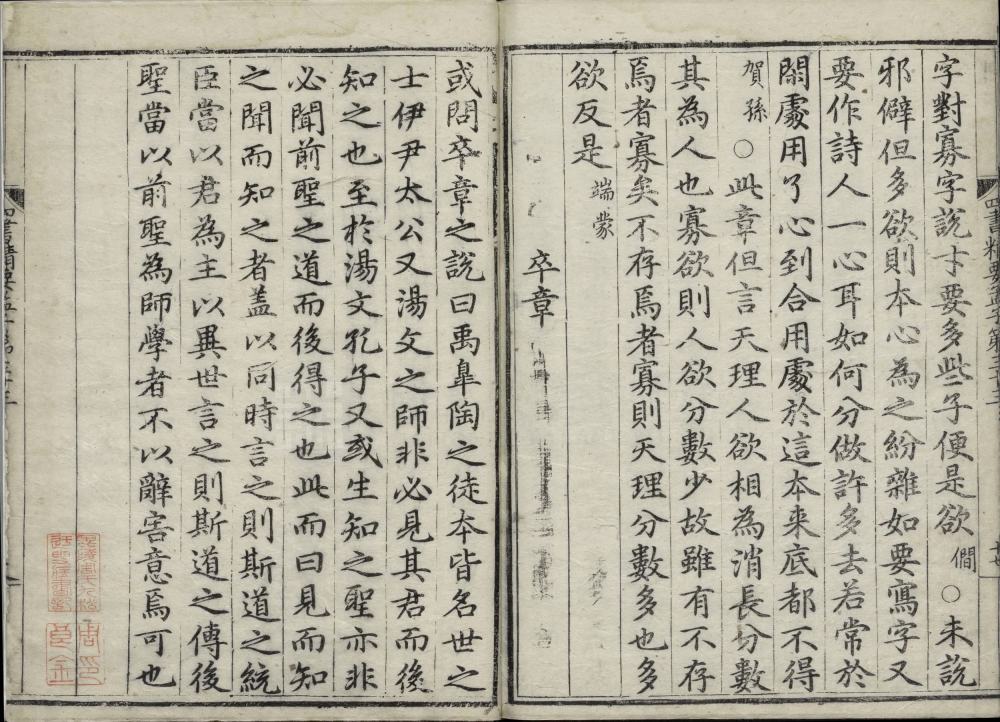 字對寡字說才要多些子便是欲僩○未說
邪僻但多欲則本心為之紛雜如要寫字又
要作詩人一心耳如何分做許多去若常於
閑處用了心到合用處於這本来底都不得
賀孫○此章但言天理人欲相為消長分數
其為人也寡欲則人欲分數少故雖有不存
焉者寡矣不存焉者寡則天理分數多也多
欲反是端蒙
卒章
或問卒章之說曰禹臯陶之徒本皆名世之
士伊尹太公又湯文之師非必見其君而後
知之也至於湯文孔子又或生知之聖亦非
必聞前聖之道而後得之也此而曰見而知
之聞而知之者盖以同時言之則斯道之統
臣當以君為主以異世言之則斯道之傳後
聖當以前聖為師學者不以辭害意焉可也